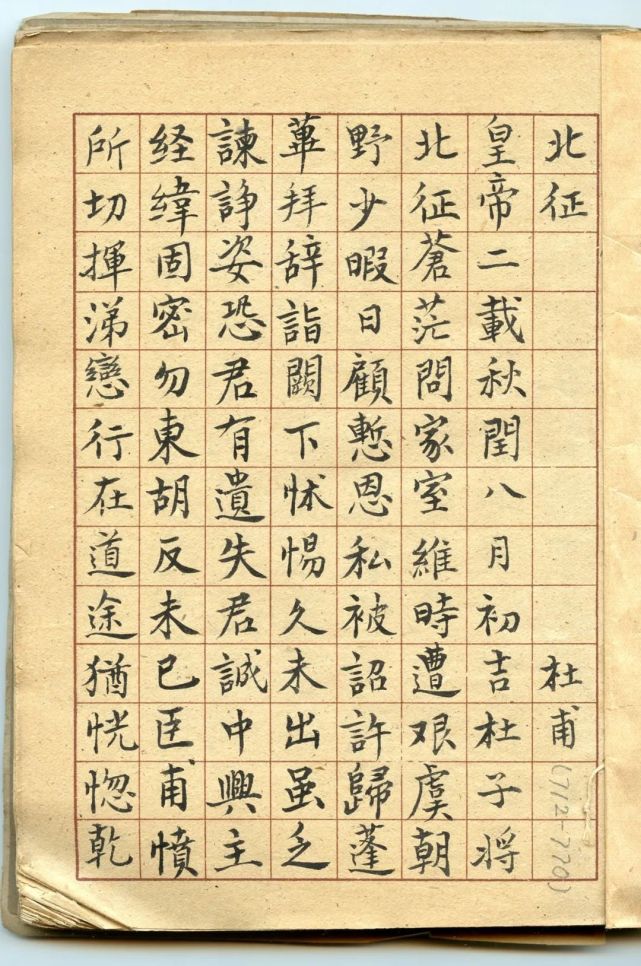 北征 杜甫 (712-770)
皇帝二載秋閏八月初吉杜子将
北征蒼茫問家室維時遭艰虞朝
野少暇日顧慙恩私被詔許歸蓬
蓽拜辞詣闕下怵惕久未出虽乏
諫諍姿恐君有遺失君誠中興主
経緯固密勿東胡反未已臣甫憤
所切揮涕戀行在道途猶恍惚乾